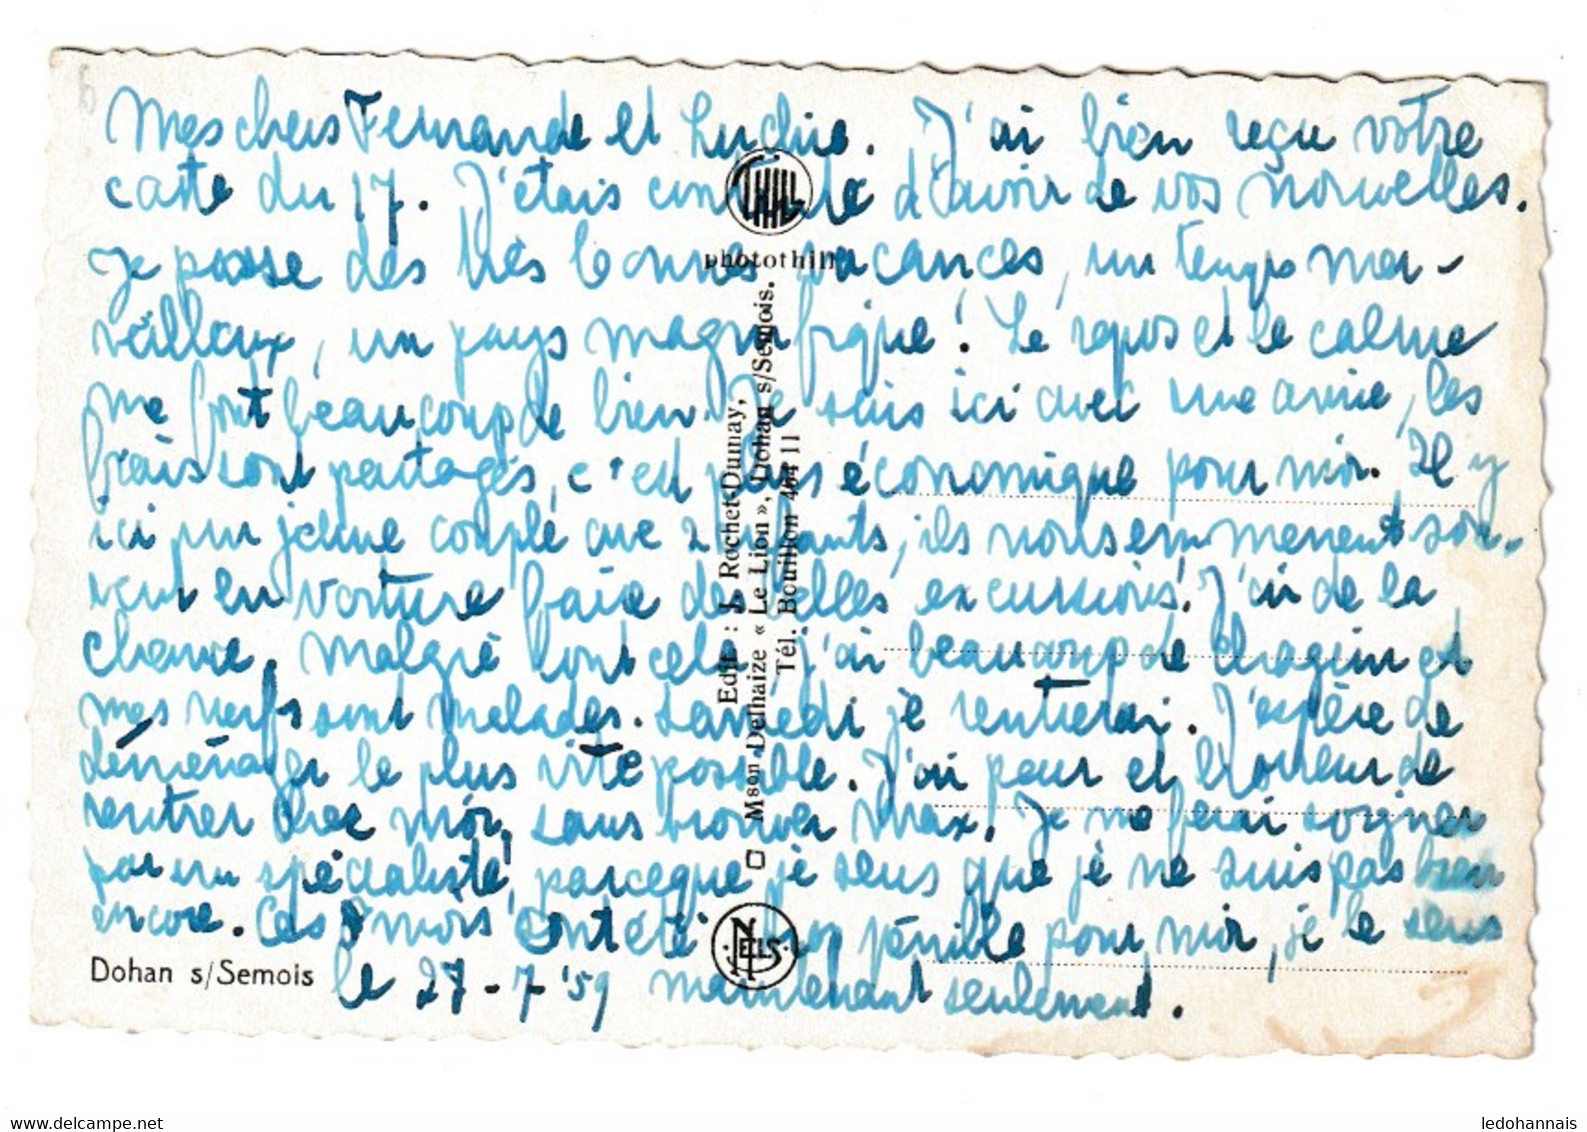 Mes chers Fernande et Luchie. J'ai bien reçu votre
carte du 17. J'étais contente d'avoir de vos nouvelles.
Je passe des très bonnes vacances, un temps mer-
veilleux, un pays magnifique! Le repos et le calme
me font beaucoup de bien. Je suis ici avec une amie, les
frais sont partagés, c'est plus économique pour moi. Il y
ici un jeune couple avec 2 enfants, ils nous emmenent sou-
vent en voiture faire des belles excursions! J'ai de la
chance. Malgré tout cela, j'ai beaucoup de chagrin et
mes nerfs sont malades. Samedi je rentrerai. J'espère de
déménager le plus vite possible. J'ai peur et l'horreur de
rentrer chez moi, sans trouver Max! Je me ferai soigner
par un spécialiste, parceque je sens que je ne suis pas bien
encore. Ces mois ont été trop pénible pour moi, je le sens
le 27-7'59 maintenant seulement.
Dohan s/Semois
THILL
photothill
Edit : J. Rochet-Dumay,
Mson Delhaize « Le Lion », Dohan s/Semois.
Tél. Bouillon 464 11
NELS
ledohannais